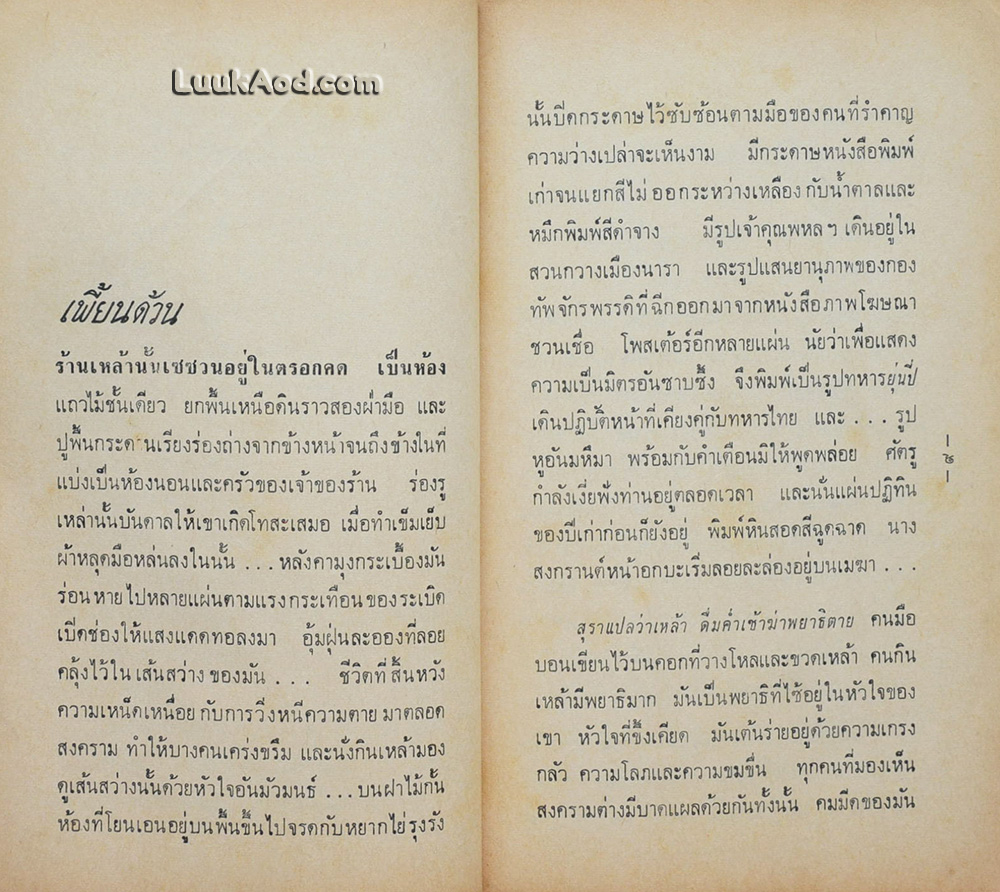 LuukAod.com
เพี้ยนด้วน
ร้านเหล้านั้นเซซวนอยู่ในตรอกคด เป็นห้อง
แถวไม้ชั้นเดียว ยกพื้นเหนือดินราวสองฝ่ามือ และ
ปูพื้นกระดานเรียงร่องถ่างจากข้างหน้าจนถึงข้างในที่
แบ่งเป็นห้องนอนและครัวของเจ้าของร้าน ร่องรู
เหล่านั้นบันดาลให้เขาเกิดโทสะเสมอ เมื่อทำเข็มเย็บ
ผ้าหลุดมือหล่นลงในนั้น ...หลังคามุงกระเบื้องมัน
ร่อนหายไปหลายแผ่นตามแรงกระเทือนของระเบิด
เปิดช่องให้แสงแดดทอลงมา อุ้มฝุ่นละอองที่ลอย
คลุ้งไว้ในเส้นสว่าง ของมัน ... ชีวิตที่สิ้นหวัง
ความเหน็ดเหนื่อย กับการวิ่งหนีความตาย มาตลอด
สงคราม ทำให้บางคนเคร่งขรึม และนั่งกินเหล้ามอง
ดูเส้นสว่างนั้นด้วยหัวใจอันมัวมนธ์ ...บนฝาไม้กั้น
ห้องที่โยนเอนอยู่บนพื้นขึ้นไปจรดกับหยากไย่รุงรัง
นั้นปิดกระดาษไว้ซับซ้อนตามมือของคนที่รำคาญ
ความว่างเปล่าจะเห็นงาม มีกระดาษหนังสือพิมพ์
เก่าจนแยกสีไม่ ออกระหว่างเหลือง กับน้ำตาลและ
หมึกพิมพ์สีดำจาง มีรูปเจ้าคุณพหล ฯ เดินอยู่ใน
สวนกวางเมืองนารา และรูปแสนยานุภาพของกอง
ทัพจักรพรรดิที่ฉีกออกมาจากหนังสือภาพโฆษณา
ชวนเชื่อ โพสเต้อร์อีกหลายแผ่น นัยว่าเพื่อแสดง
ความเป็นมิตรอันซาบซึ้ง จึงพิมพ์เป็นรูปทหารยุ่นปี่
เดินปฏิบัติหน้าที่เคียงคู่กับทหารไทย และ ... รูป
หูอันมหึมา พร้อมกับคำเตือนมิให้พูดพล่อย ศัตรู
กำลังเงี่ยฟังท่านอยู่ตลอดเวลา และนั่นแผ่นปฏิทิน
ของปีเก่าก่อนก็ยังอยู่ พิมพ์หินสอดสีฉูดฉาด นาง
สงกรานต์หน้าอกบะเริ่มลอยละล่องอยู่บนเมฆา ...
สุราแปลว่าเหล้า ดื่มค่ำเช้าฆ่าพยาธิตาย คนมือ
บอนเขียนไว้บนคอกที่วางโหลและขวดเหล้า คนกิน
เหล้ามีพยาธิมาก มันเป็นพยาธิที่ไช้อยู่ในหัวใจของ
เขา หัวใจที่ขึ้งเคียด มันเต้นร่ายอยู่ด้วยความเกรง
กลัว ความโลภและความขมขื่น ทุกคนที่มองเห็น
สงครามต่างมีบาดแผลด้วยกันทั้งนั้น คมมีดของมัน